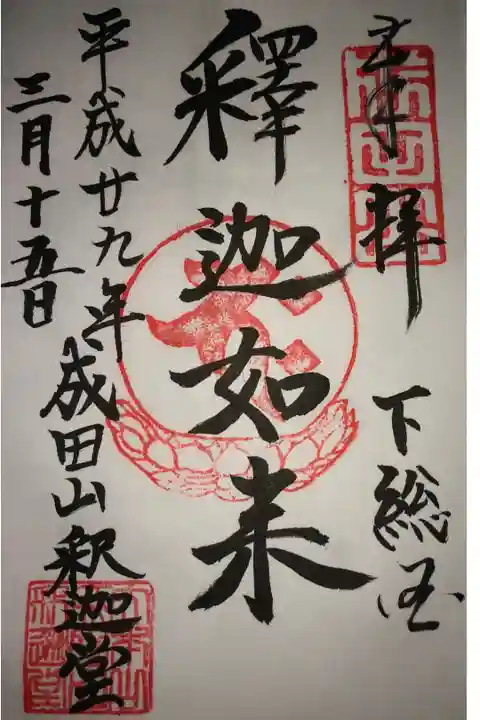 奉拝
下総国
釋迦如来
平成廿九年
三月十五日
成田山釈迦堂